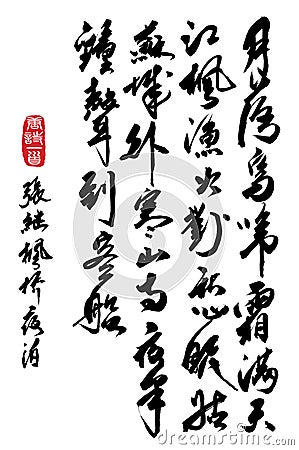 月落烏啼霜滿天
江楓漁火對愁眠姑
蘇城外寒山寺夜半
鐘聲到客船
唐詩一首
張継楓橋夜泊
dreamstime.com